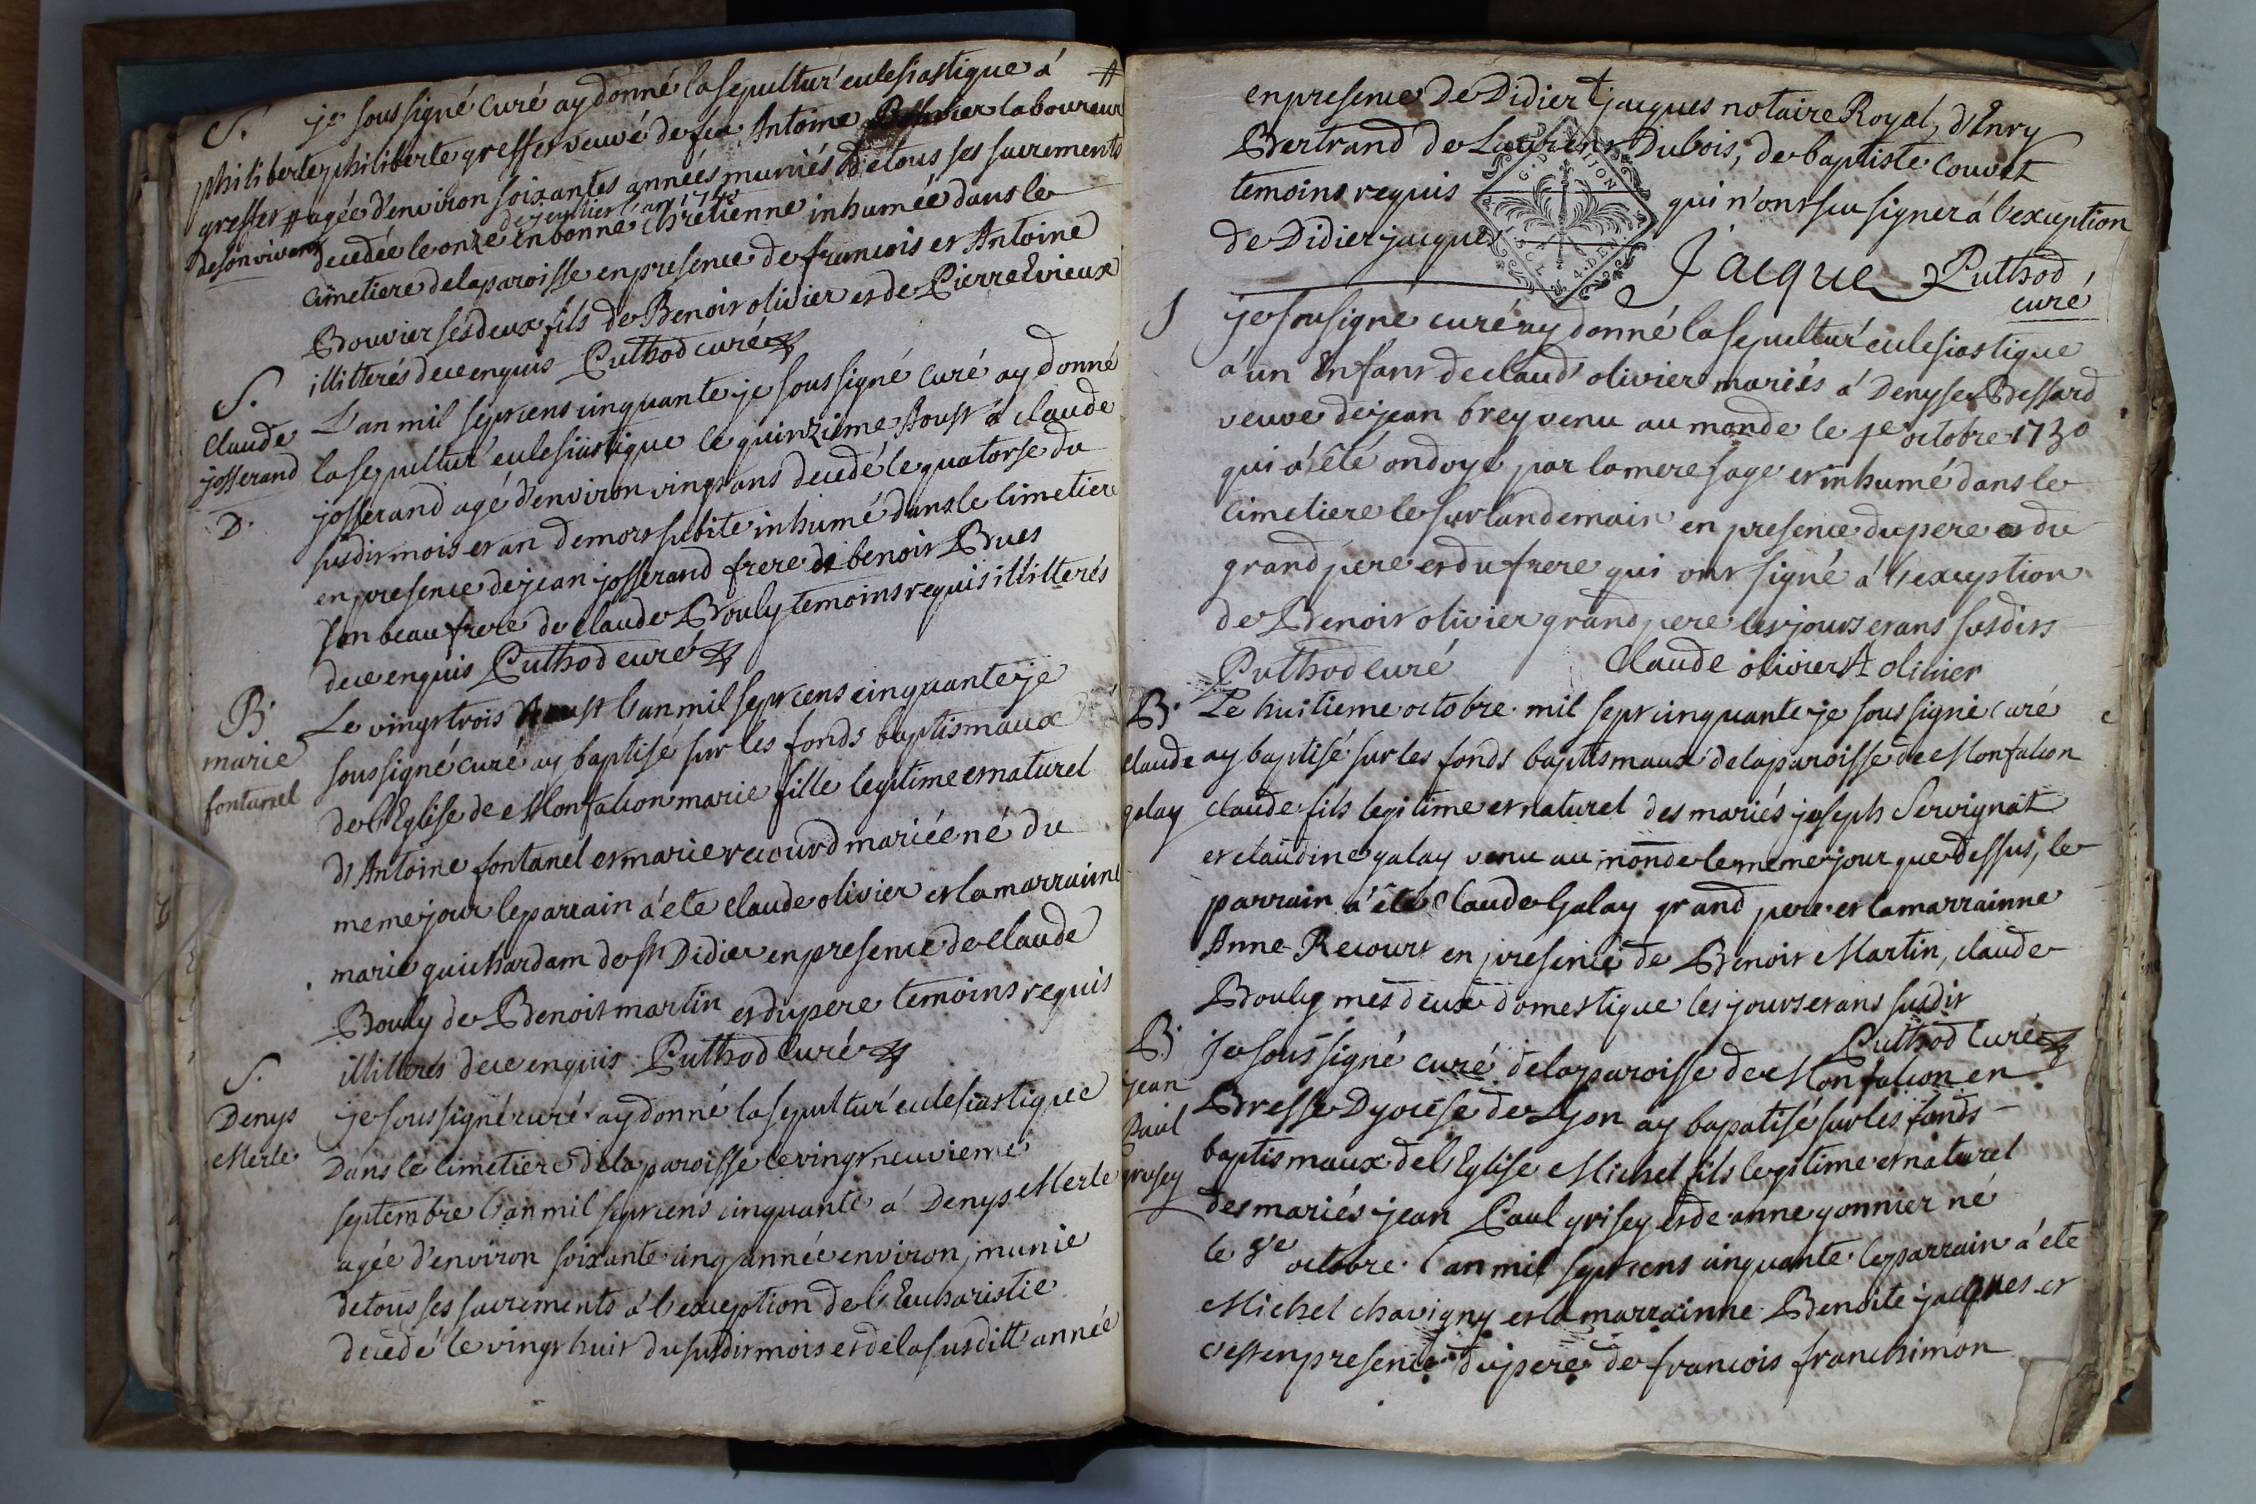 S. je soussigné curé ay donné la sepultur' eclesiastique á #
philiberte philiberte greffer veuvé de feu Antoine Bouvier laboureur
greffer # agée d'environ soixantes années muniés de tous ses sacrements
de son vivant
de juillier l'an 1750
decedée le onze en bonne chretienne inhumée dans le
cimetiere de la paroisse en presence de francois et Antoine
Bouvier ses deux fils de Benoit olivier et de Pierre Evieux
illitterés de ce enquis Puthod curé
S. L'an mil sept cens cinquante je soussigné curé ay donné
Claude la sepultur' eclesiastique le quinzieme Aoust á claude
josserand josserand agé d'environ vingt ans decedé le quatorse du
D. susdit mois et an de mort subite inhumé dans le cimetiere
en presence de jean josserand frere de benoit Bues
son beau frere de claude Bouly temoins requis illitterés
de ce enquis Puthod curé
B. Le vingt trois Aoust l'an mil sept cens cinquante je
marie soussigné curé ay baptisé sur les fonds baptismaux
fontanel de l'Eglise de Monfalcon marie fille legitime et naturel
d'Antoine fontanel et marie recourd mariée né du
meme jour le parrain á ete claude olivier et la marrainne
marie guichardam de st Didier en presence de claude
Bouly de Benoit martin et du pere temoins requis
illitterés de ce enquis Puthod curé
S. je soussigné curé ay donné la sepultur' eclesiastique
Denys Dans le cimetiere de la paroisse le vingt neuvieme
Merle septembre l'an mil sept cens cinquante á Denys Merle
agée d'environ soixante cinq année environ, munie
de tous ses sacrements á l'exception de l'Eucharistie
decedé le vingt huit du susdit mois et de la susditt année
en presence de Didier jacques notaire Royal, d'Enry
Bertrand de Laurens Dubois, de baptiste Couvet
temoins requis qui n'ont su signer á l'exception
de Didier jacques
Jacque Puthod
curé
S je sousigné curé ay donné la sepultur' eclesiastique
á un Enfant de claud' olivier mariés á Denyse Bessard
veuve de jean brey venu au monde le 4e octobre 1750
qui á été ondoyé par la mere sage et inhumé dans le
cimetiere le surlandemain en presence du pere et du
grand pere et du frere qui ont signé á l'exception
de Benoit olivier grand pere les jours et ans susdits
Puthod curé Claude olivier A olivier
B. Le huitieme octobre mil sept cinquante je soussigné curé
claude ay baptisé sur les fonds baptismaux de la paroisse de Monfalcon
galay claude fils legitime et naturel des mariés joseph Servignat
et claudine galay venu au monde le meme jour que dessus, le
parrain á été Claude Galay grand pere et la marrainne
Anne Recourt en presence de Benoit Martin, claude
Bouly mes deux domestique les jours et ans susdit
Puthod Curé
B. je soussigné curé de la paroisse de Monfalcon en
jean Bresse Dyocése de Lyon ay bapatisé sur les fonds
Paul baptismaux de l'Eglise Michel fils legitime et naturel
grisey des mariés jean Paul grisey et de anne gonnier né
le 8e octobre l'an mil sept cens cinquante le parrain á ete
Michel chavigny et la marrainne Benoite jacques et
c'est en presence du pere de francois franchimon